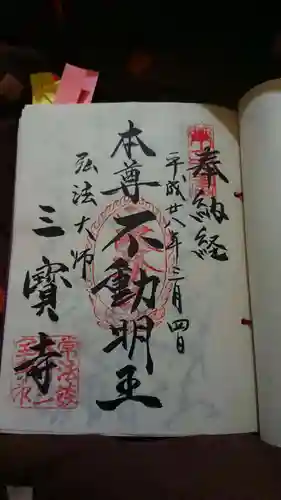 奉納経
平成廿八年三月四日
本尊不動明王
弘法大師
三寶寺